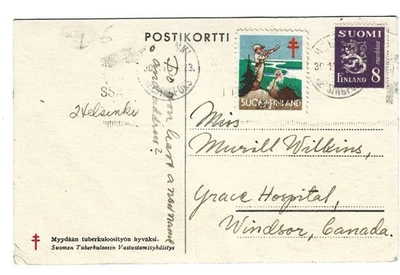 POSTIKORTTI
SUOMI
FINLAND 8
SUOMI-FINLAND
Helsinki
Do you have a new name
and address?
Miss
Murill Wilkins,
Grace Hospital,
Windsor, Canada.
Myydään tuberkuloosityön hyväksi.
Suomen Tuberkuloosin Vastustamisyhdistys